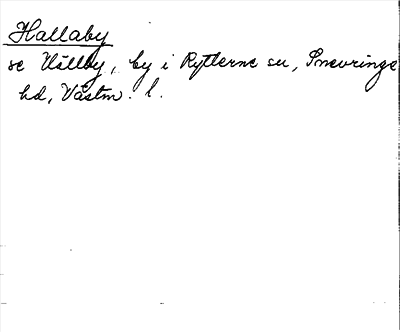 Hallaby
se Vållby, by i Rytterne sn, Snevringe
hd, Västm. l.